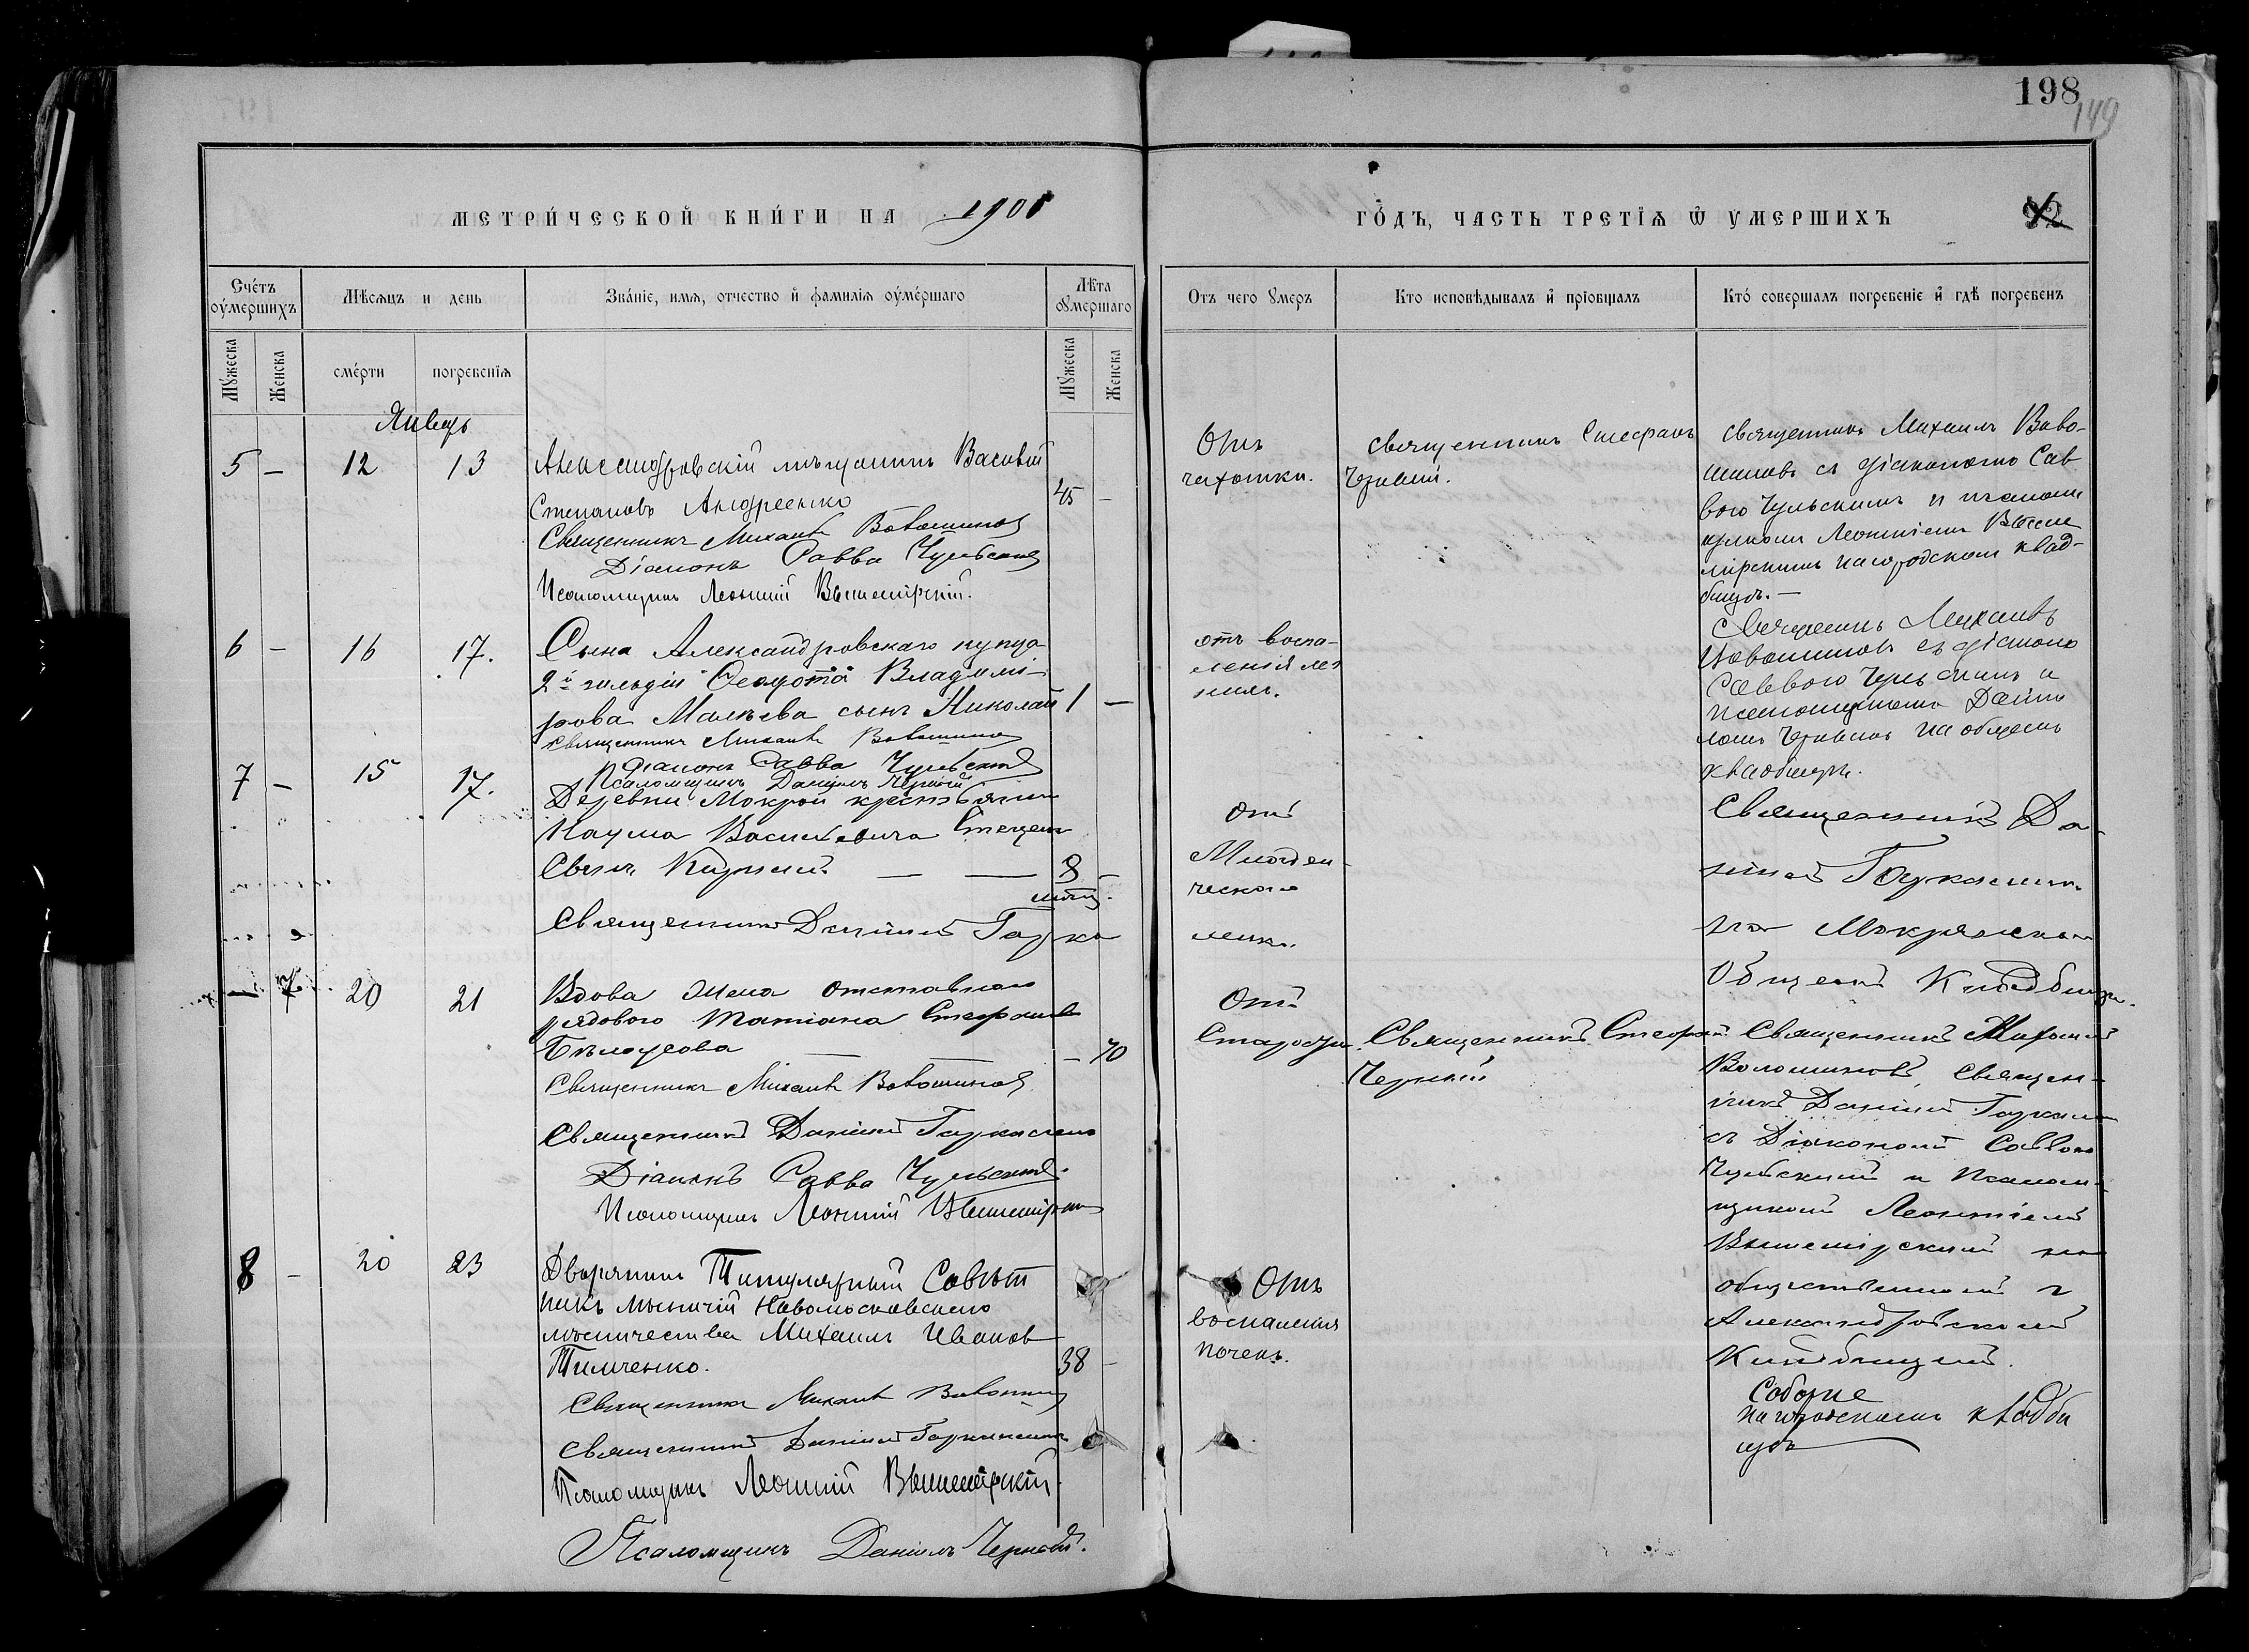 198
149
МЕТРИ́ЧЕСКОЙ КНИ́ГИ НА 1901
ГО́ДЪ, ЧАСТЬ ТРЕТІѦ Ѿ УМЕРШИХЪ
92
Сче́тъ оу҆ме́ршихъ
Мѣсѧцъ и день
Зва́нїе, имѧ, отчество и҆ фамилїѧ оу҆ме́ршаго
Лѣта ꙋмершаго
Отъ чего ꙋмеръ
Кто исповѣдывалъ и҆ прїобщалъ
Кто́ совершалъ погребенїе и҆ гдѣ погребенъ
Мꙋжеска
Женска
сме́рти
погребенїѧ
Мꙋжеска
Женска
Январь
5 — 12 13
Александровскій мѣщанинъ Василій
Степановъ Андреенко
45 —
Священникъ Михаилъ Волошиновъ
Діаконъ Савва Чульскій
Псаломщикъ Леонтій Вышемірскій.
Отъ
чахотки.
Священникъ Стефанъ
Черный.
Священникъ Михаилъ Воло-
шиновъ съ діакономъ Сав
вою Чульскимъ и псалом
щикомъ Леонтіемъ Выше
мірскимъ на городскомъ клад-
бищѣ. —
6 — 16 17.
Сына Александровскаго купца
2й гильдіи Ѳеодота Владимі-
рова сынъ Николай
1 —
Священникъ Михаилъ Волошиновъ
Діаконъ Савва Чульскій
Псаломщикъ Даніилъ Черный
отъ воспа-
ленія лег
кихъ.
Священникъ Михаилъ
Волошиновъ съ діакономъ
Саввою Чульскимъ и
псаломщикомъ Дании
ломъ Чернымъ на общемъ
кладбищѣ.
7 — 15 17.
Деревни Мокрой крестьянина
Наума Васильевича
Сынъ — —
8 —
мѣс.
Священникъ Даніилъ
Отъ
Младен-
ческаго
Священникъ Да-
ніилъ
на Мокрянскомъ
Общемъ Кладбищѣ.
— 7 20 21
Вдова жена отставного
рядового Татіана Стефанова
Бѣлоусова — —
— 70
Священникъ Михаилъ Волошиновъ
Священникъ Даніилъ
Діаконъ Савва Чульскій.
Псаломщикъ Леонтій Вышемірскій
Отъ
Старости.
Священникъ Стефанъ
Черный
Священникъ Михаилъ
Волошиновъ, Священ-
никъ Даніилъ
съ Діакономъ Саввою
Чульскимъ и Псалом-
щикомъ Леонтіемъ
Вышемірскимъ на
общественномъ г
Александровскомъ
Кладбищѣ.
8 — 20 23
Дворянинъ Титулярный Совѣт
никъ лѣсничій Новомосковскаго
лѣсничества Михаилъ Ивановъ
Тимченко.
38 —
Священникъ Михаилъ Волошиновъ
Священникъ Даніилъ
Псаломщикъ Леонтій Вышемірскій.
Псаломщикъ Даніилъ Черный.
Отъ
воспаленія
почекъ.
Соборне
на городскомъ кладби
щѣ